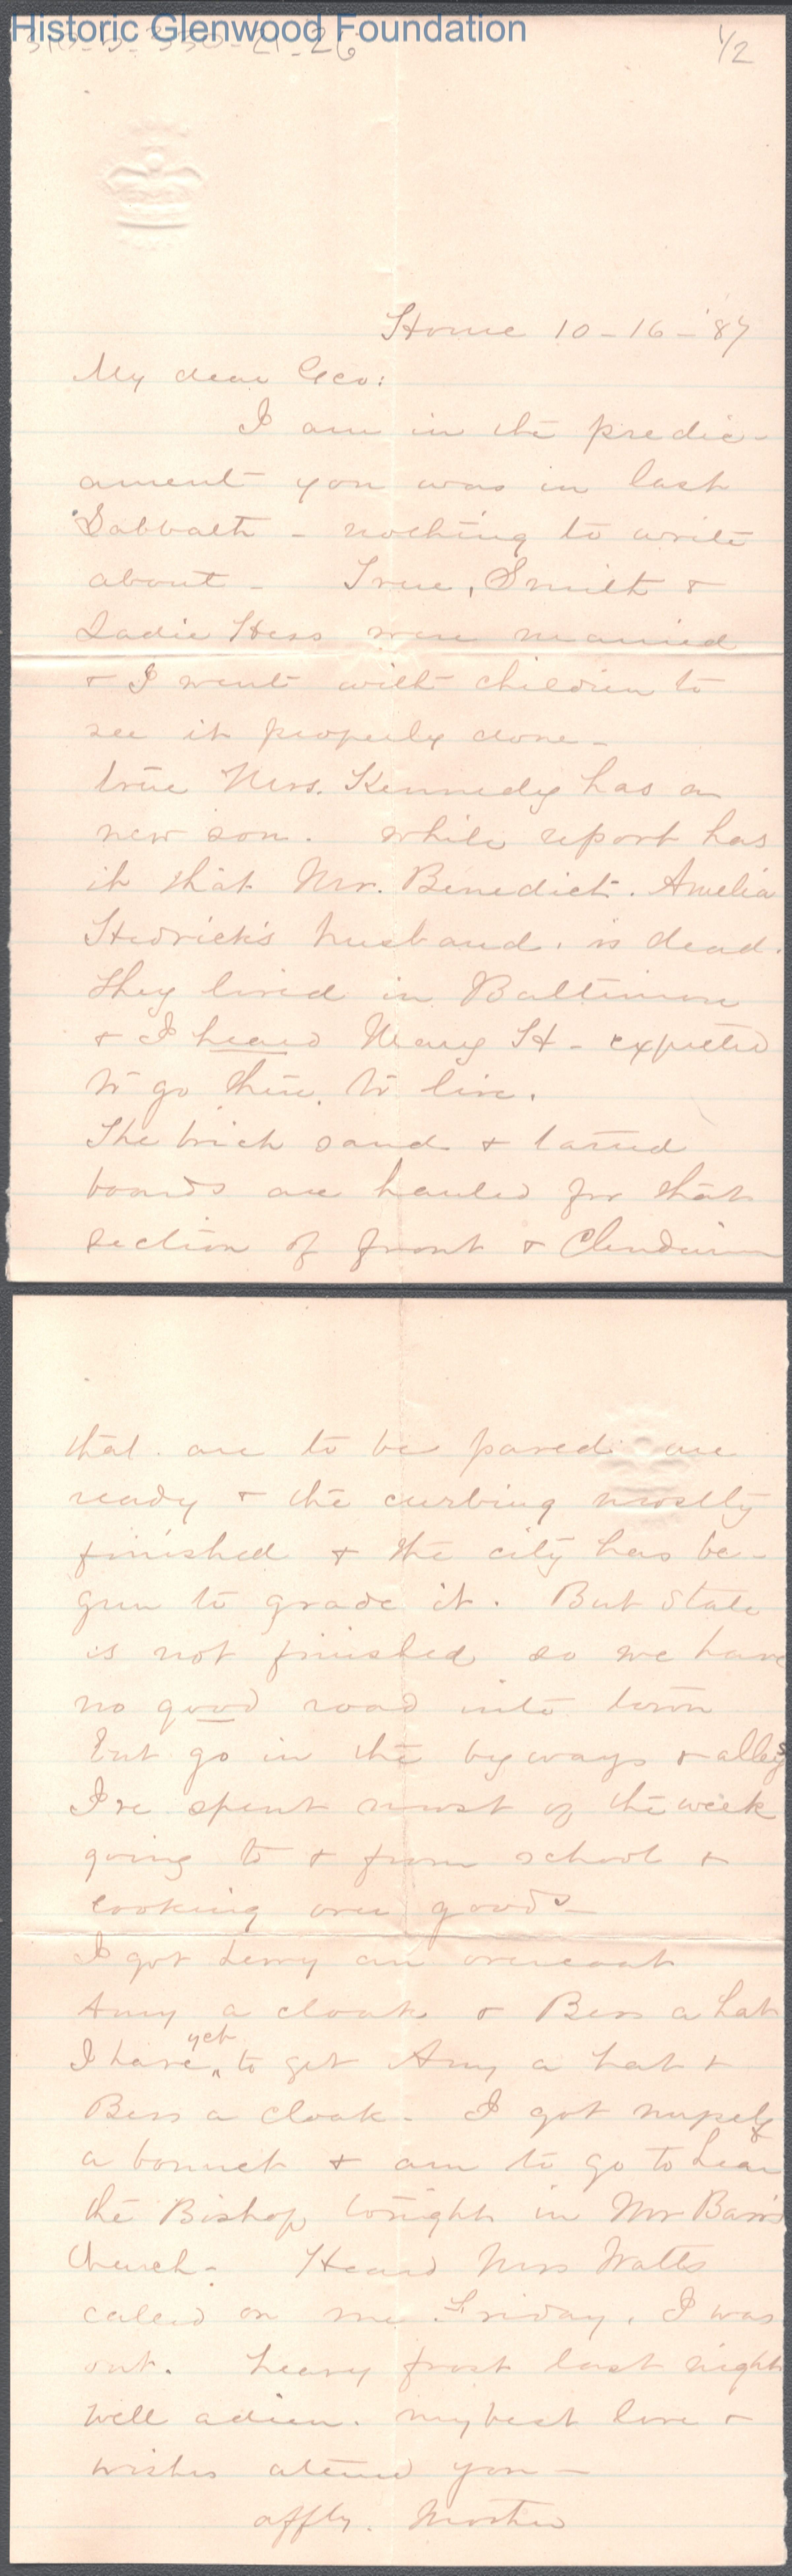 Historic Glenwood Foundation
1/2
Home 10-16-'87
My dear Geo:
I am in the predic-
ament you was in last
Sabbath - nothing to write
about - True, Smith &
Sadie Hess were married
& I went with children to
see it properly done -
true Mrs. Kennedy has a
new son. while report has
it that Mr. Benedict. Amelia
Hedrick's husband. is dead.
They lived in Baltimore
& I heard Mary H - expected
to go there. to live.
The brick sand & tarred
boards are hauled for that
section of front & Clendinin
that are to be paved are
ready & the curbing mostly
finished & the city has be-
gun to grade it. But State
is not finished so we have
no good road into town
but go in the byways & alleys
I've spent most of the week
going to & from school &
looking over goods -
I got Lewy an overcoat
Amy a cloak & Bess a hat
I have yet to get Amy a hat &
Bess a cloak - I got myself
a bonnet & am to go to hear
the Bishop tonight in Mr Barr's
Church - Heard Mrs Watts
called on me Friday. I was
out. heavy frost last night
Well adieu. my best love &
wishes attend you -
affly. Mother